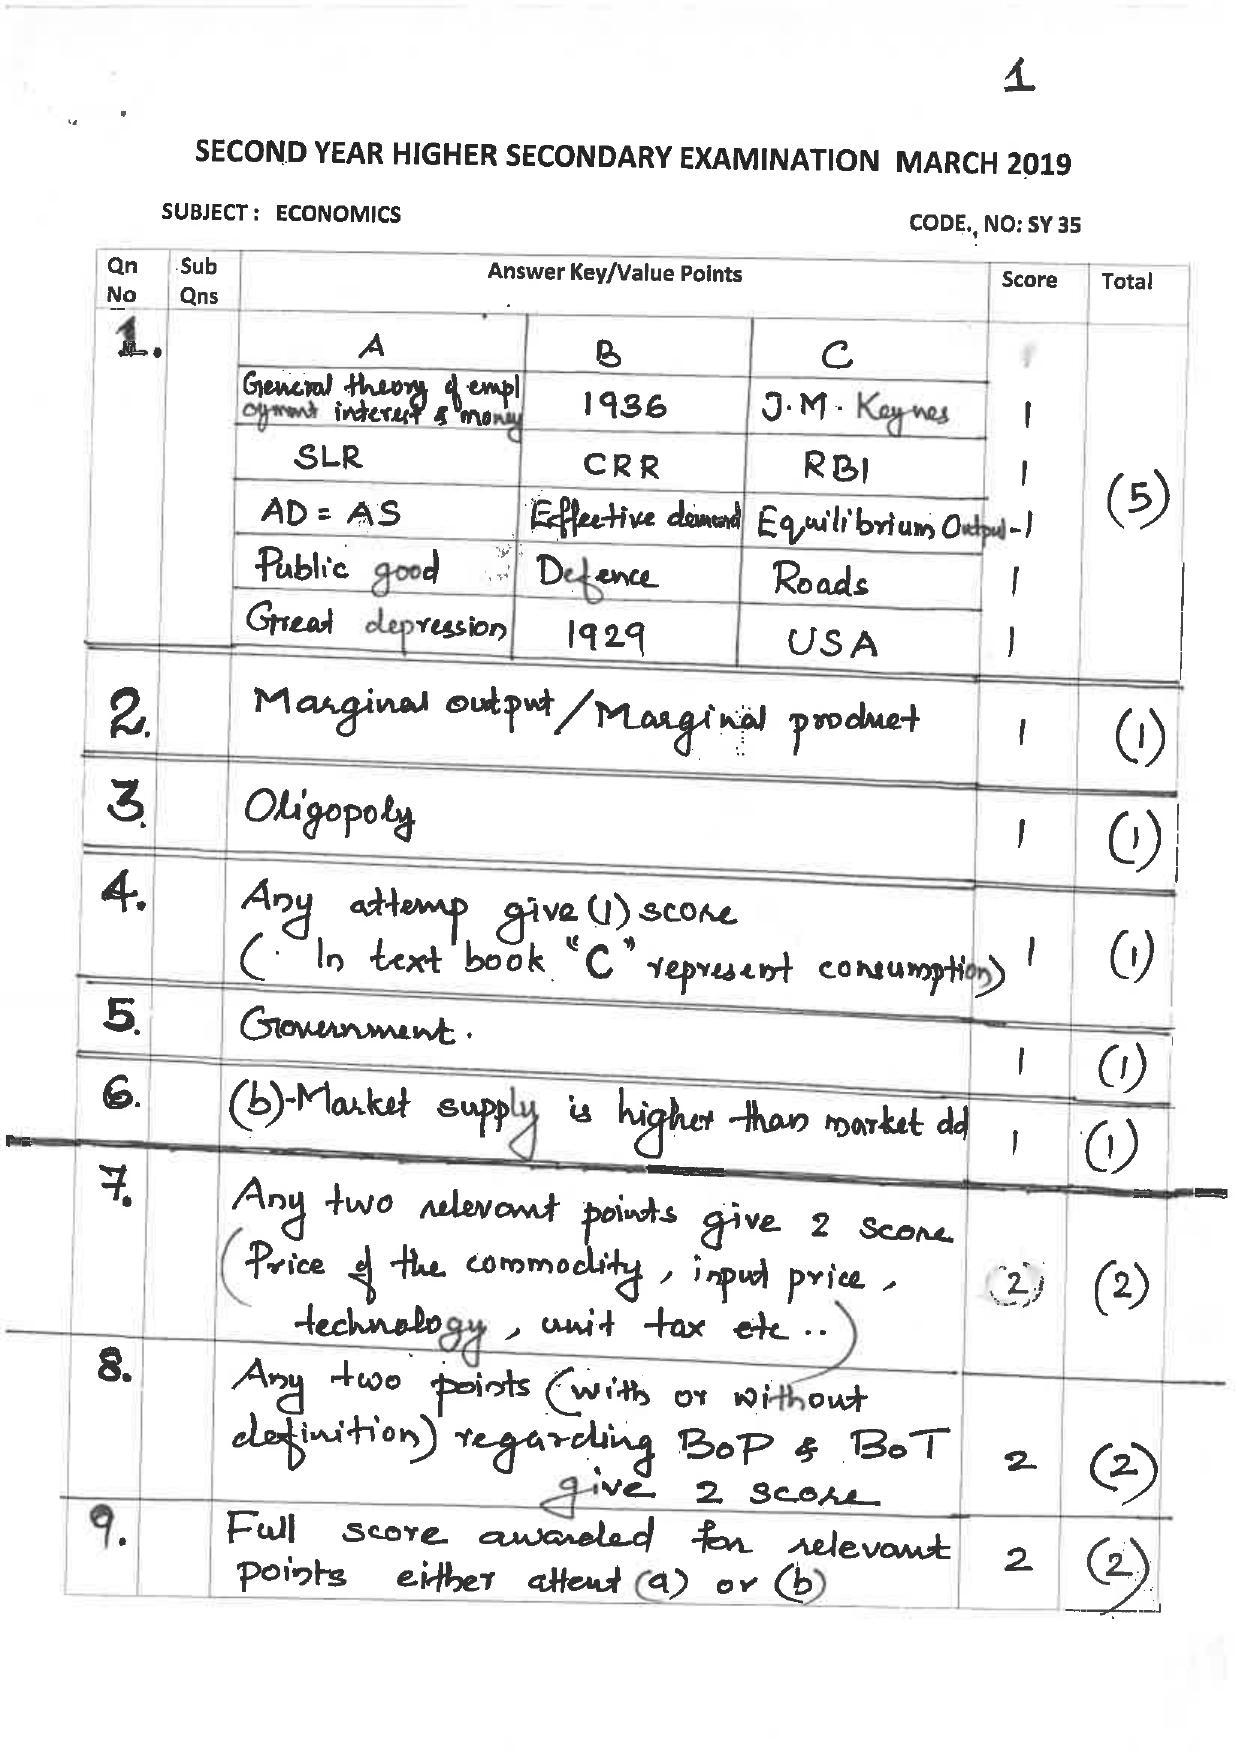 1
SECOND YEAR HIGHER SECONDARY EXAMINATION MARCH 2019
SUBJECT : ECONOMICS
CODE., NO: SY 35
Qn No Sub Qns Answer Key/Value Points Score Total
1. A B C
General theory of empl
oyment interest & money 1936 J.M. Keynes 1
SLR CRR RBI 1
(5)
AD = AS Effective demand Equilibrium Output - 1
Public good Defence Roads 1
Great depression 1929 USA 1
2. Marginal output / Marginal product 1 (1)
3. Oligopoly 1 (1)
4. Any attemp give (1) score
( In text book "C" represent consumption) 1 (1)
5. Government. 1 (1)
6. (b)-Market supply is higher than market dd 1 (1)
7. Any two relevant points give 2 score
(Price of the commodity, input price, (2) (2)
technology, unit tax etc ..)
8. Any two points (with or without
definition) regarding BoP & BoT 2 (2)
give 2 score
9. Full score awarded for relevant
points either attent (a) or (b) 2 (2)